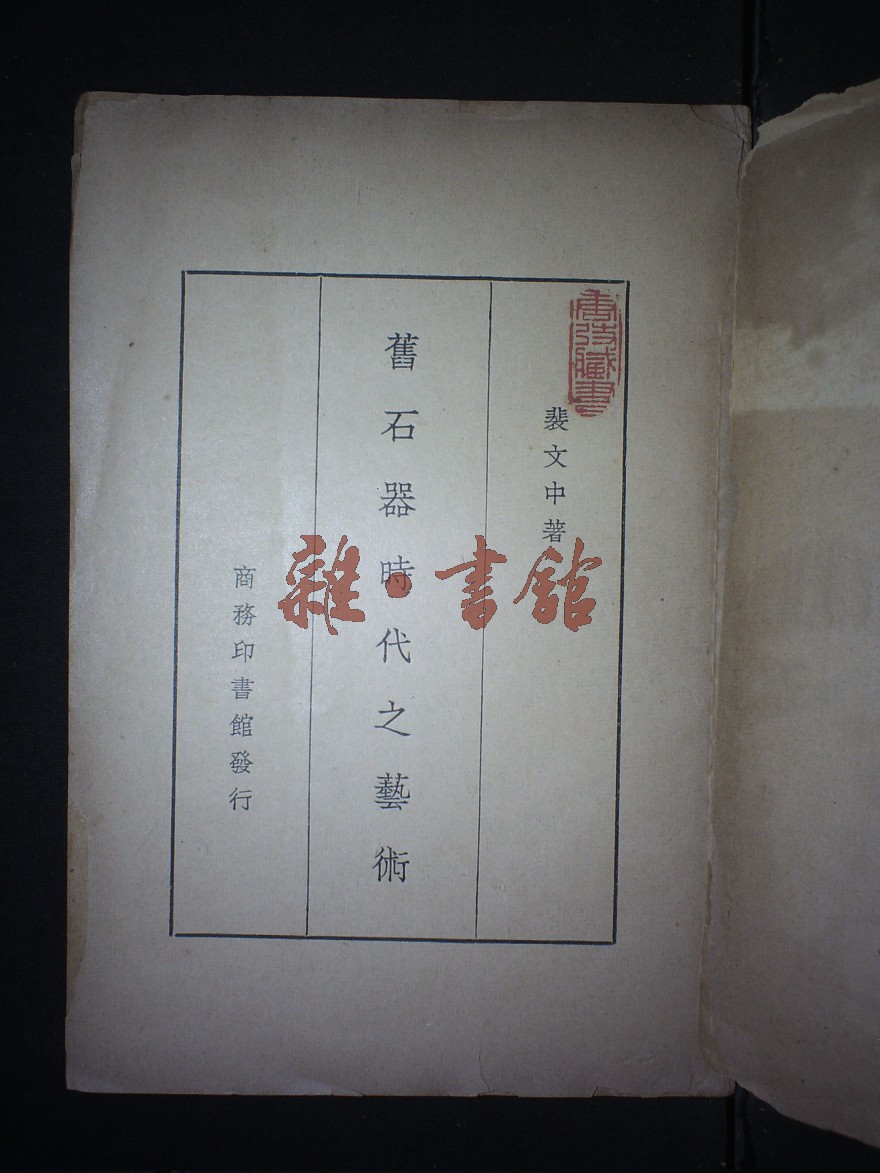 裴文中著
舊石器時代之藝術
商務印書館發行
雜·書館